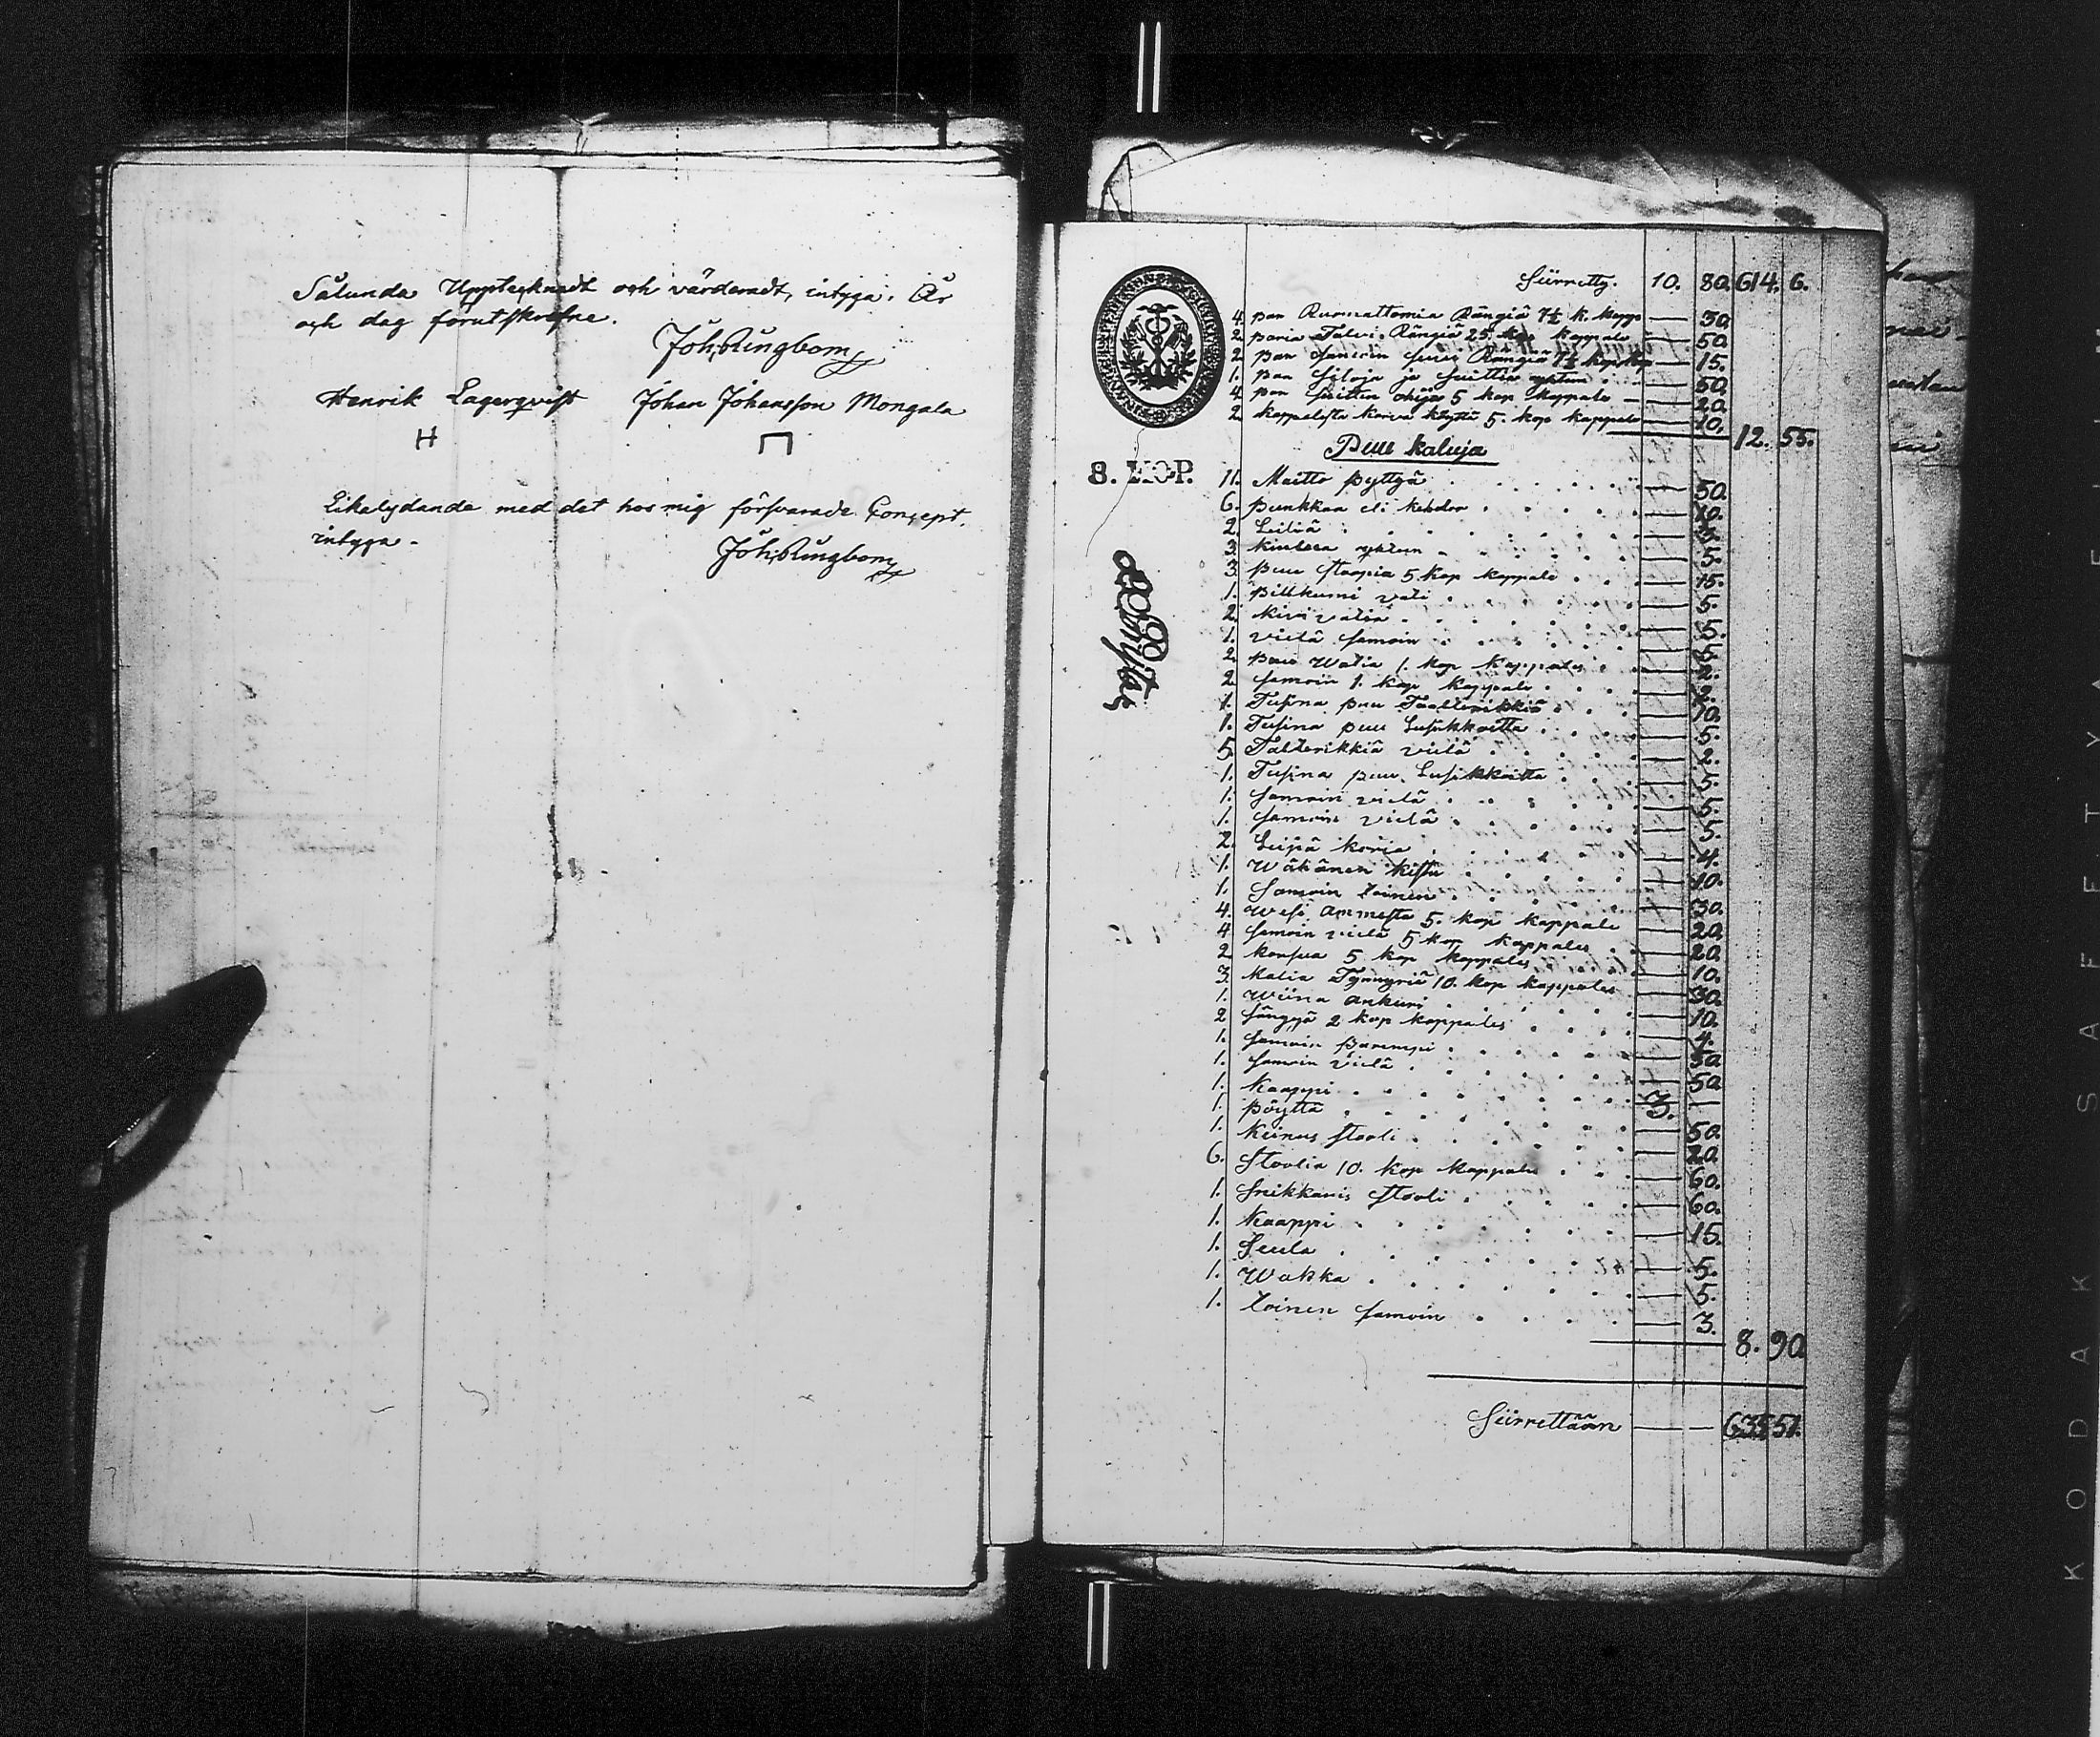 Sålunda Upptecknadt och värderadt, intyga. År
och dag förutskrefne.
Joh. Ringbom
Henrik Lagerqvist Johan Johansson Mongala
H
Likalydande med det hos mig förvarade Concept,
intyga.
Joh. Ringbom
Siirretty. 10. 80. 614. 6.
4. par Rängiä 7½ k. kapp — 30.
2. paria Talvi Rängiä 25. kop kappale — 50.
2. par samoin Rängiä 7½ kop — 15.
1. par Siloja ja Suittia yhtun — 50.
4. par Suittia 5 kop kappale — 20.
2. kappalesta 5. kop kappale — 10.
12. 55.
Puu kaluja
8. KOP.
11. Maitto pyttyä — 50.
6. punkkaa eli — 10.
2. Leiliä — 5.
3. yhtun — 5.
3. puu stoopia 5 kop kappale — 15.
1. vati — 5.
2. kivi vatia — 5.
1. vielä samoin — 5.
2. puu Watia 1. kop kappales — 2.
2. samoin 1. kop kappale — 2.
1. Tusina puu Taalerikkiä — 10.
1. Tusina puu Lusikkoitta — 5.
5. Tallerikkiä vielä — 2.
1. Tusina puu Lusikkoitta — 5.
1. samoin vielä — 5.
1. samoin vielä — 5.
2. Leipä koria — 4.
1. Wähänen kistu — 10.
1. Samoin toinen — 30.
4. Wesi Ammesta 5. kop kappale — 20.
4. samoin vielä 5 kop kappales — 20.
2. korsua 5 kop kappales — 10.
3. Kalia Tynnyriä 10. kop kappales — 30.
1. Wiina Ankuri — 10.
2. sängyä 2 kop kappales — 4.
1. samoin parempi — 30.
1. samoin vielä — 50.
1. Kaappi 3. —
1. pöyttä — 50.
1. Keinus stooli — 20.
6. Stoolia 10. kop kappale — 60.
1. Snikkaris stooli — 60.
1. Kaappi — 15.
1. Seula — 5.
1. Wakka — 5.
1. toinen samoin — 3.
8. 90.
Siirrettään — — 635 51.
KODAK SAFETY